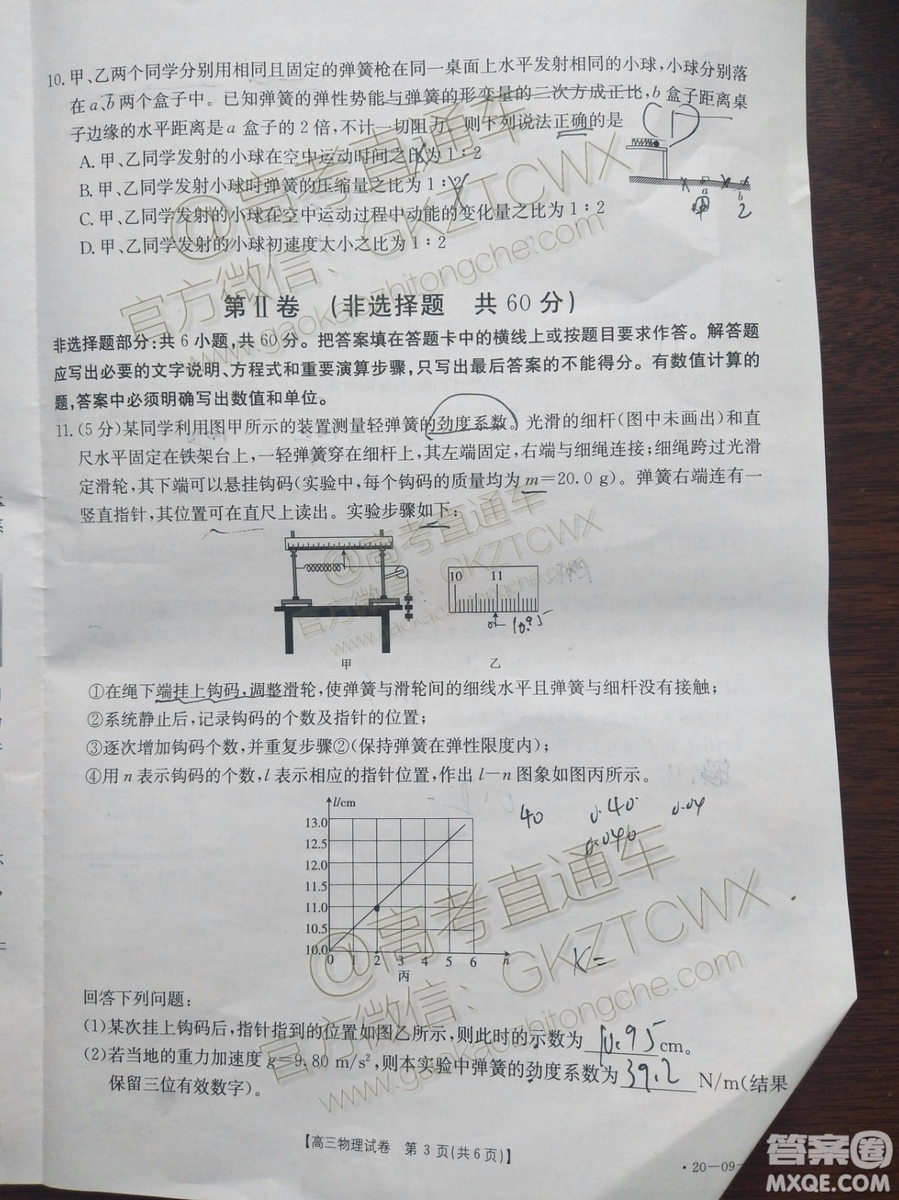 10. 甲、乙两个同学分别用相同且固定的弹簧枪在同一桌面上水平发射相同的小球,小球分别落
在a、b两个盒子中。已知弹簧的弹性势能与弹簧的形变量的二次方成正比,b盒子距离桌
子边缘的水平距离是a盒子的2倍,不计一切阻力。则下列说法正确的是
A. 甲、乙同学发射的小球在空中运动时间之比为1:2
B. 甲、乙同学发射小球时弹簧的压缩量之比为1:2
C. 甲、乙同学发射的小球在空中运动过程中动能的变化量之比为1:2
D. 甲、乙同学发射的小球初速度大小之比为1:2
a b
2
第Ⅱ卷 (非选择题 共60分)
非选择题部分:共6小题,共60分。把答案填在答题卡中的横线上或按题目要求作答。解答题
应写出必要的文字说明、方程式和重要演算步骤,只写出最后答案的不能得分。有数值计算的
题,答案中必须明确写出数值和单位。
11. (5分)某同学利用图甲所示的装置测量轻弹簧的劲度系数。光滑的细杆(图中未画出)和直
尺水平固定在铁架台上,一轻弹簧穿在细杆上,其左端固定,右端与细绳连接;细绳跨过光滑
定滑轮,其下端可以悬挂钩码(实验中,每个钩码的质量均为m=20.0 g)。弹簧右端连有一
竖直指针,其位置可在直尺上读出。实验步骤如下:
10 11
10.95
甲 乙
①在绳下端挂上钩码,调整滑轮,使弹簧与滑轮间的细线水平且弹簧与细杆没有接触;
②系统静止后,记录钩码的个数及指针的位置;
③逐次增加钩码个数,并重复步骤②(保持弹簧在弹性限度内);
④用n表示钩码的个数,l表示相应的指针位置,作出l-n图象如图丙所示。
l/cm
13.0
12.5
12.0
11.5
11.0
10.5
10.0
0 1 2 3 4 5 6 n
丙
40 0.40 0.04
0.040
K=
回答下列问题:
(1)某次挂上钩码后,指针指到的位置如图乙所示,则此时的示数为 10.95 cm。
(2)若当地的重力加速度g=9.80 m/s²,则本实验中弹簧的劲度系数为 39.2 N/m(结果
保留三位有效数字)。
【高三物理试卷 第3页(共6页)】
·20-09-
@高考直通车
官方微信:GKZTCWX
www.gaokaozhitongche.com
@高考直通车
官方微信:GKZTCWX
www.gaokaozhitongche.com
@高考直通车
官方微信:GKZTCWX
www.gaokaozhitongche.com
答案圈
MXQE.COM